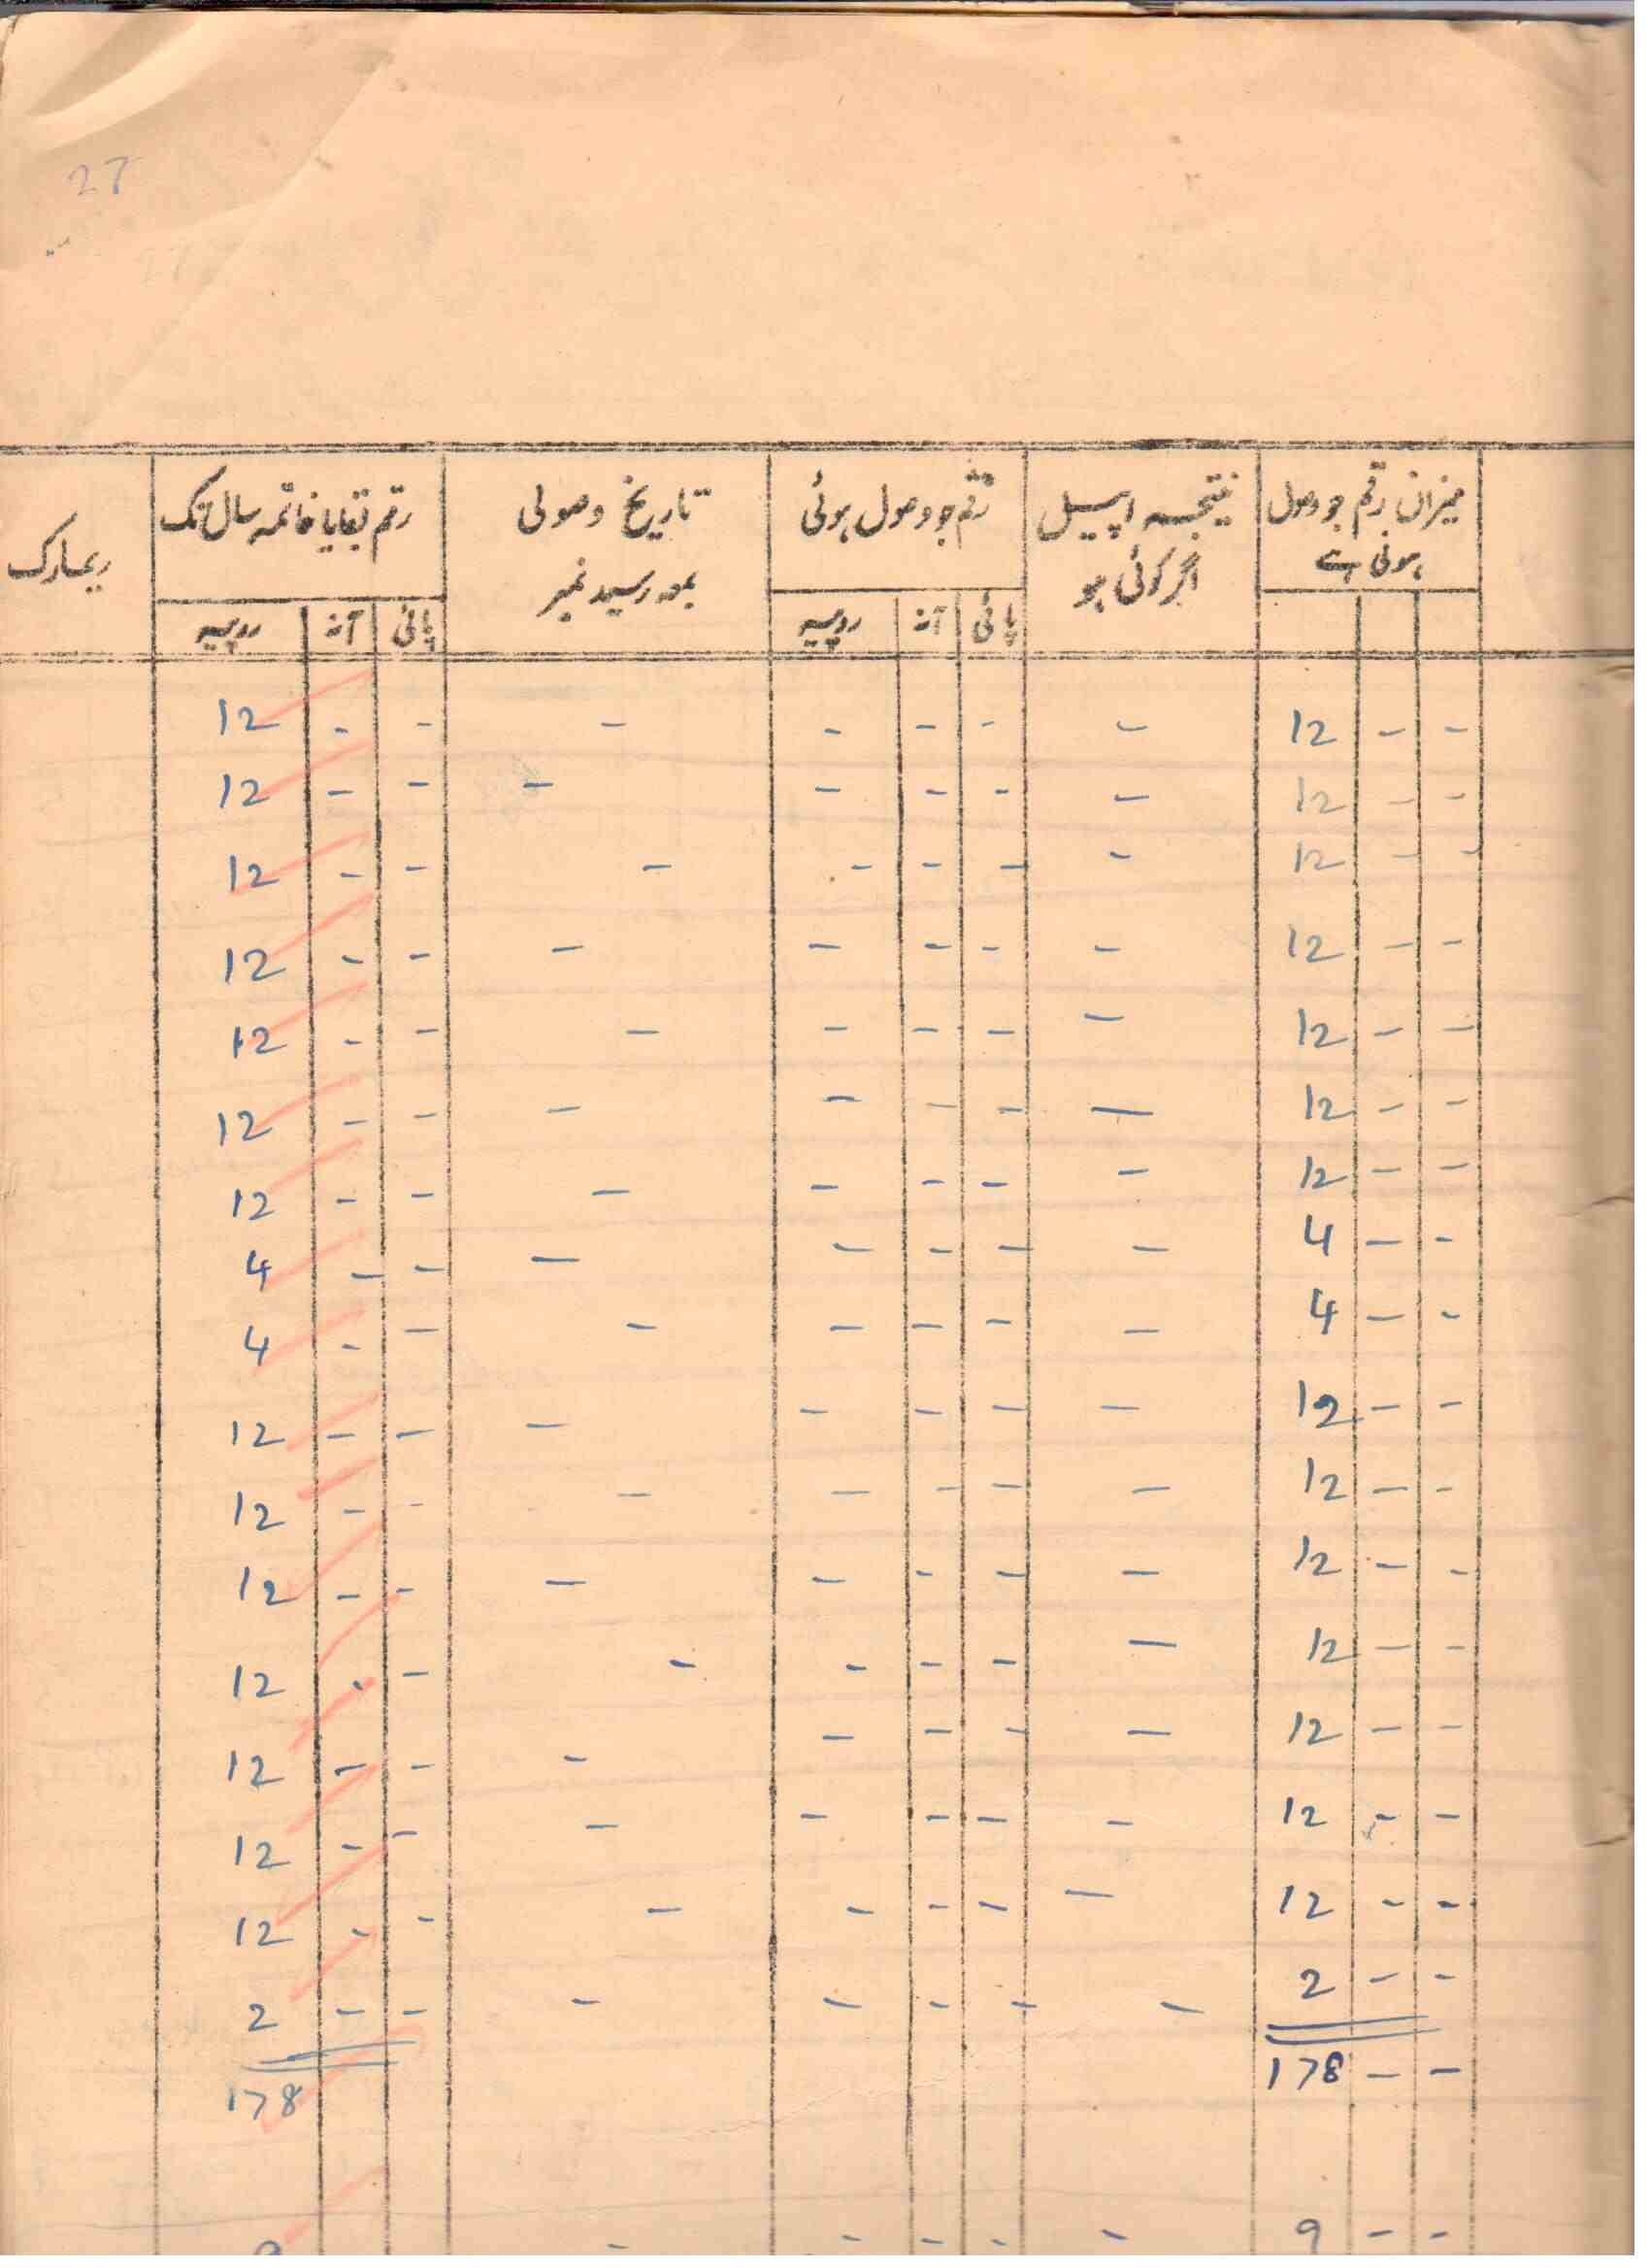 27
میزان رقم جو وصول ہوئی ہے | نتیجہ اپیل اگر کوئی ہو | رقم جو وصول ہوئی | تاریخ وصولی بمعہ رسید نمبر | رقم بقایا خاتمہ سال تک | ریمارک
پائی | آنہ | روپیہ | پائی | آنہ | روپیہ
12 - - | - | - - - | - | 12 - -
12 - - | - | - - - | - | 12 - -
12 - - | - | - - - | - | 12 - -
12 - - | - | - - - | - | 12 - -
12 - - | - | - - - | - | 12 - -
12 - - | - | - - - | - | 12 - -
12 - - | - | - - - | - | 12 - -
4 - - | - | - - - | - | 4 - -
4 - - | - | - - - | - | 4 - -
12 - - | - | - - - | - | 12 - -
12 - - | - | - - - | - | 12 - -
12 - - | - | - - - | - | 12 - -
12 - - | - | - - - | - | 12 - -
12 - - | - | - - - | - | 12 - -
12 - - | - | - - - | - | 12 - -
12 - - | - | - - - | - | 12 - -
2 - - | - | - - - | - | 2 - -
178 - - | 178
9 - - | - | - - - | -